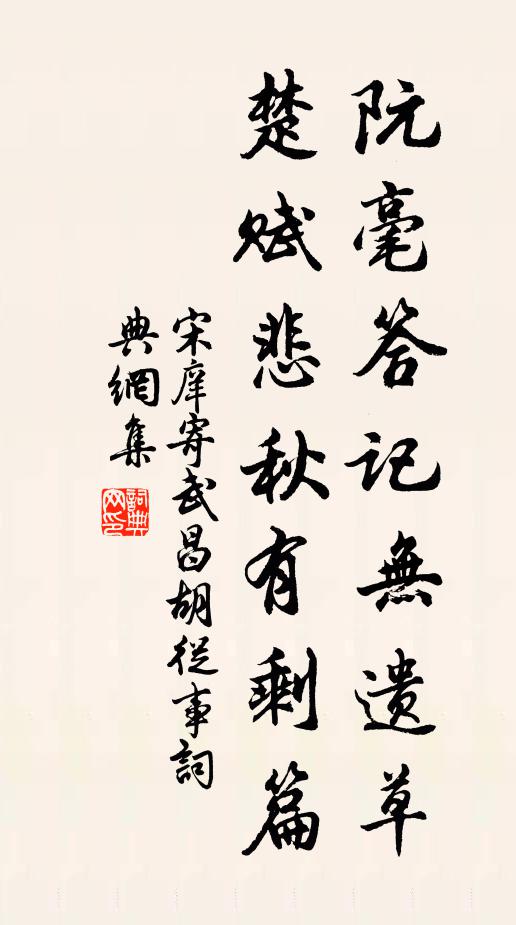 阮毫答记無遗草
楚赋悲秋有剩篇
宋庠寄武昌胡從事詞
典網集
詞典
网印